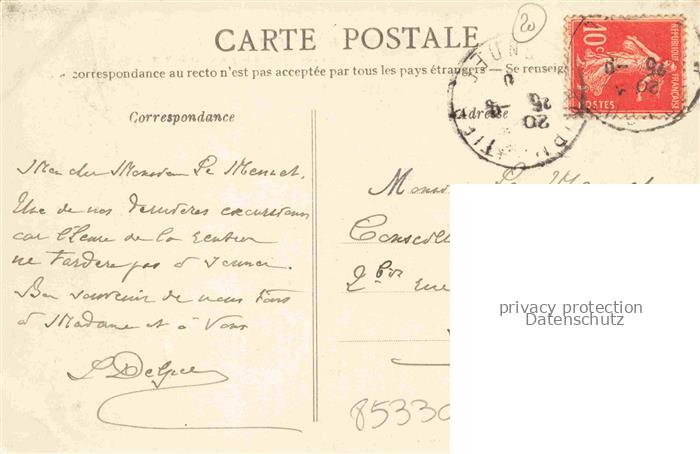 20
CARTE POSTALE
correspondance au recto n'est pas acceptée par tous les pays étrangers — Se renseign
RÉPUBLIQUE FRANÇAISE
10c
POSTES
Correspondance
Adresse
Mon cher Monsieur Le Mennet.
Une de nos dernières excursions
car l'heure de la rentrée
ne tardera pas à sonner.
Bon souvenir de nous tous
à Madame et à Vous
L Delpee
Mons
Conseill
2 bis rue
85330
privacy protection
Datenschutz